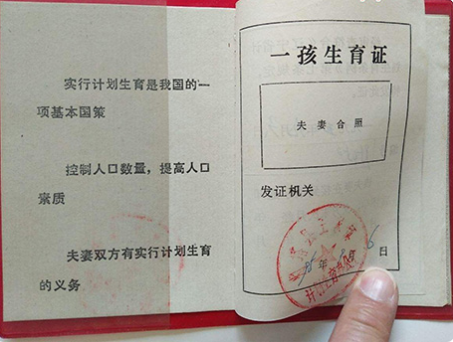 实行计划生育是我国的一
项基本国策
控制人口数量，提高人口
素质
夫妻双方有实行计划生育
的义务
一孩生育证
夫妻合照
发证机关
年
6
日